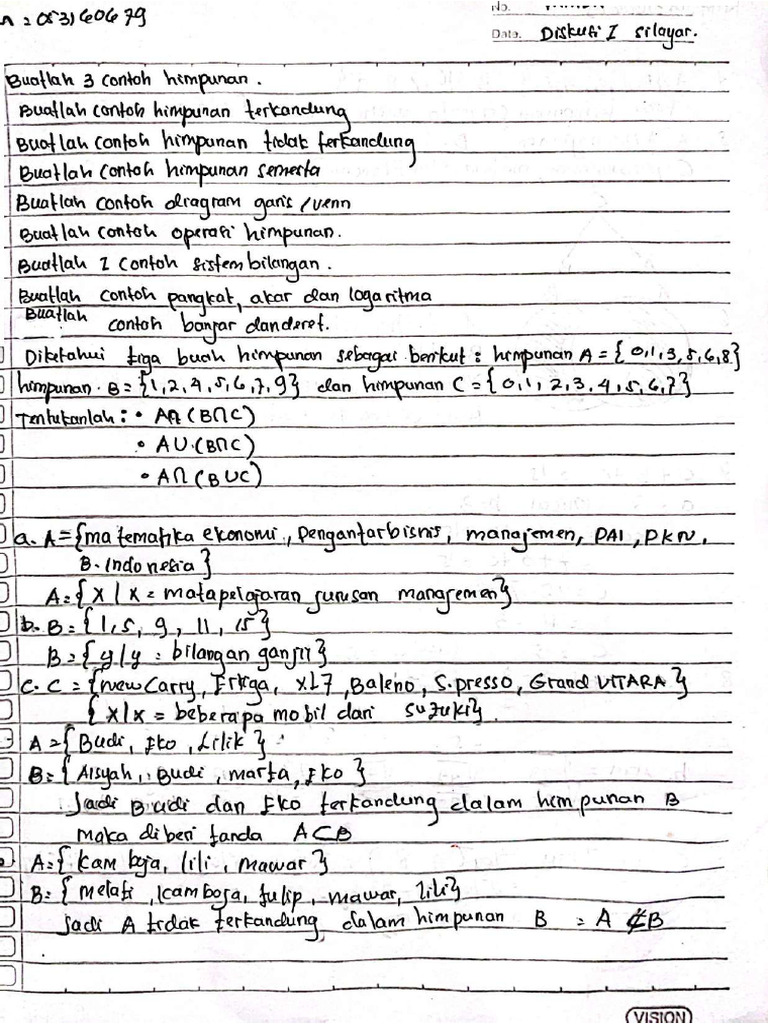 n = 053160679
No.
Date. Diskusi I silayar.
Buatlah 3 contoh himpunan.
Buatlah contoh himpunan terkandung
Buatlah contoh himpunan tidak terkandung
Buatlah contoh himpunan semesta
Buatlah contoh diagram garis / venn
Buatlah contoh operasi himpunan.
Buatlah 1 contoh sistem bilangan.
Buatlah contoh pangkat, akar dan logaritma
Buatlah contoh banjar dan deret.
Diketahui tiga buah himpunan sebagai berikut : himpunan A = { 0,1,3,5,6,8}
himpunan. B = {1,2,4,5,6,7,9} dan himpunan C = {0,1,2,3,4,5,6,7}
Tentukanlah : • A∩ (B∩C)
• A∪ (B∩C)
• A∩ (B∪C)
a. A = {matematika ekonomi, Pengantar bisnis, manajemen, PAI, PKN,
B. Indonesia}
A = { x / x = mata pelajaran jurusan manajemen}
b. B = {1,5, 9, 11, 15}
B = { y/y = bilangan ganjil}
C. C = {New Carry, Ertiga, XL7, Baleno, S.presso, Grand VITARA}
{ x/x = beberapa mobil dari suzuki}
A = {Budi, Eko, Lilik}
B = { Aisyah, Budi, marta, Eko }
Jadi Budi dan Eko terkandung dalam himpunan B
maka diberi tanda A⊂B
A = { kamboja, lili, mawar }
B = { melati, kamboja, tulip, mawar, lili}
Jadi A tidak terkandung dalam himpunan B = A ⊄B
VISION